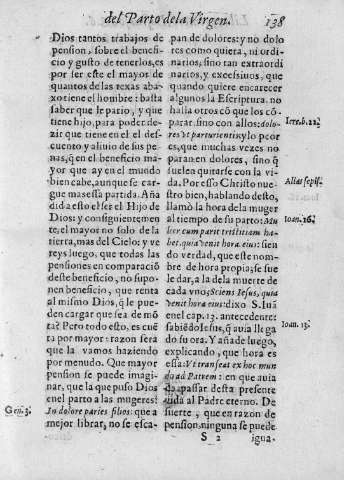 del Parto dela Virgen. 138
Dios tantos trabajos de
pension, sobre el benefi-
cio y gusto de tenerlos, es
por ser este el mayor de
quantos de las texas aba-
xo tiene el hombre: basta
saber que le pario, y que
tiene hijo, para poder de-
zir que tiene en el el des-
cuento y aliuio de sus pe-
nas, q̃ en el beneficio ma-
yor que ay en el mundo
bien cabe, aunque se car-
gue massessa partida. Aña
did a esto el ser el Hijo de
Dios: y consiguientemen-
te, el mayor no solo de la
tierra, mas del Cielo: y ve
reys luego, que todas las
pensiones en comparació
deste beneficio, no supo-
nen beneficio, que renta
al mismo Dios, q̃ le pue
den cargar que sea de mõ
ta? Pero todo esto, es cuē
ta por mayor: razon será
que la vamos haziendo
por menudo. Que mayor
pension se puede imagi-
nar, que la que puso Dios
en el parto a las mugeres?
Gen. 3. In dolore paries filios: que a
mejor librar, no se esca-
pan de dolores: y no dolo
res como quiera, ni ordi-
narios, sino tan extraordi
narios, y excessiuos, que
quando quiere encarecer
algunos la Escriptura, no
halla otros cõ que los cõ-
parar sino con allos: dolo-
res vt parturientis: y lo peor
es, que muchas vezes no
paran en dolores, sino q̃
suelen quitarse con la vi-
da. Por esso Christo nue-
stro bien, hablando desto,
llamò la hora de la muger
al tiempo de su parto: Mu
lier cum parit tristitiam ha-
bet, quia venit hora eius: sien
do verdad, que este nom-
bre de hora propia, se sue
le dar, a la de la muerte de
cada vno, Sciens Iesus, quia
venit hora eius: dixo S. Iuã
en el cap. 13. antecedente:
sabiẽdo Iesus, q̃ auia llega
do su ora. Y añade luego,
explicando, que hora es
essa: Vt transeat ex hoc mun
do ad Patrem: en que auia
de passar desta presente
vida al Padre eterno. De
suerte, que en razon de
pension, ninguna se puede
Iere. 6. 22.
Alias sæpiss.
Ioan. 16.
Ioan. 13.
S 2 igua-